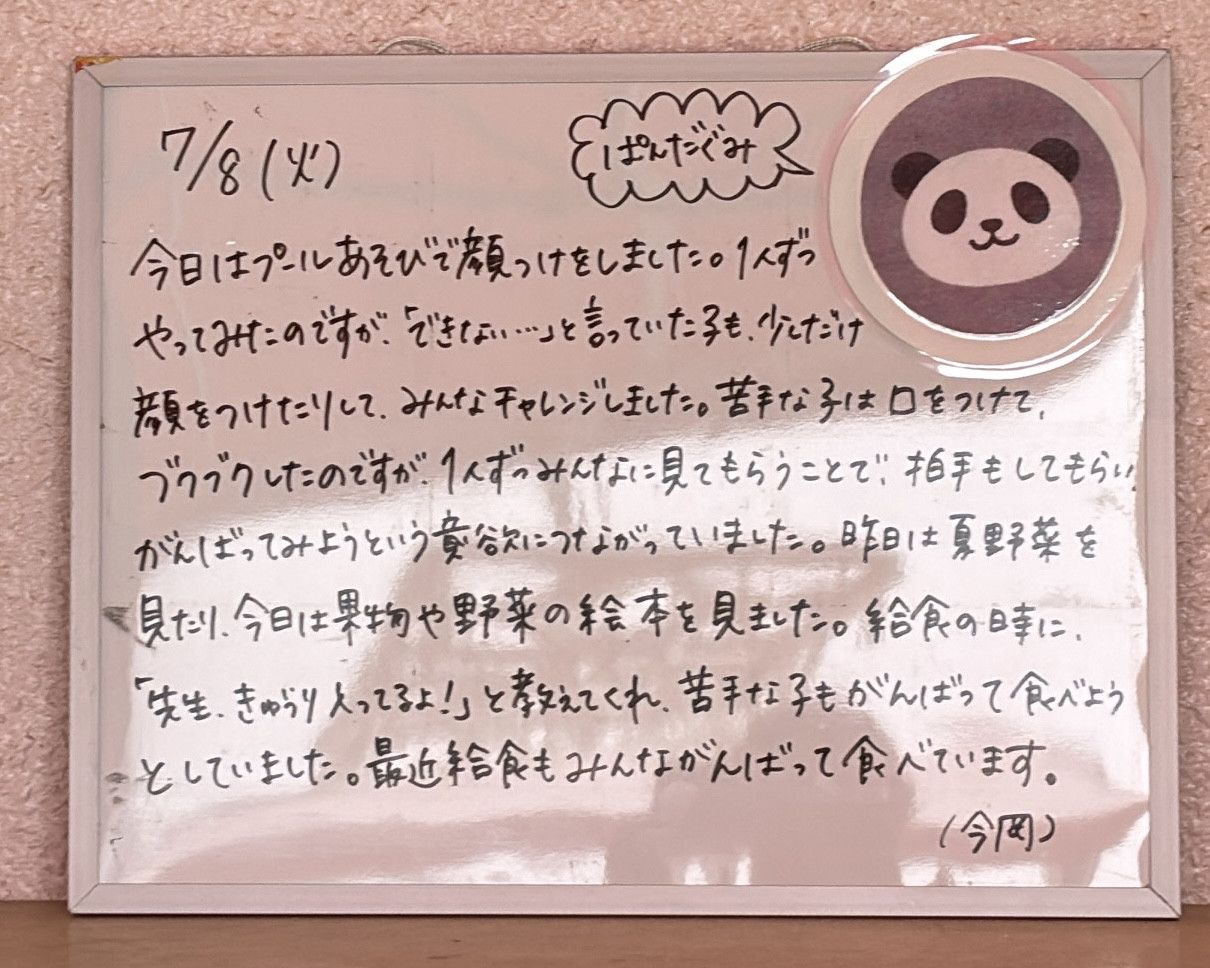 7/8(火)
ぱんだぐみ
今日はプールあそびで顔つけをしました。1人ずつ
やってみたのですが、「できない…」と言っていた子も、少しだけ
顔をつけたりして、みんなチャレンジしました。苦手な子は口をつけて、
ブクブクしたのですが、1人ずつみんなに見てもらうことで、拍手もしてもらい
がんばってみようという意欲につながっていました。昨日は夏野菜を
見たり、今日は果物や野菜の絵本を見ました。給食の時に、
「先生、きゅうり入ってるよ!」と教えてくれ、苦手な子もがんばって食べよう
としていました。最近給食もみんながんばって食べています。
(今岡)